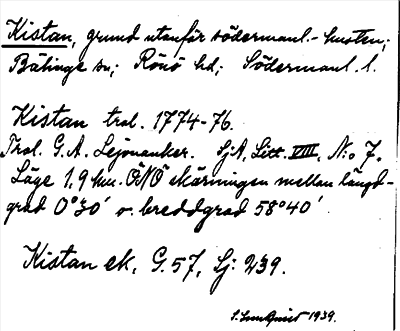 Kistan, grund utanför södermanl.-kusten;
Bälinge sn; Rönö hd; Södermanl. l.
Kistan tral. 1774-76.
Tral. G. A. Lejonanker. SjA, Litt. VIII, N:o 7.
Läge 1,9 km. ÖNÖ skärningen mellan längd-
grad 0°30' o. breddgrad 58°40'
Kistan ek. G. 57, Sj: 239.
1939.